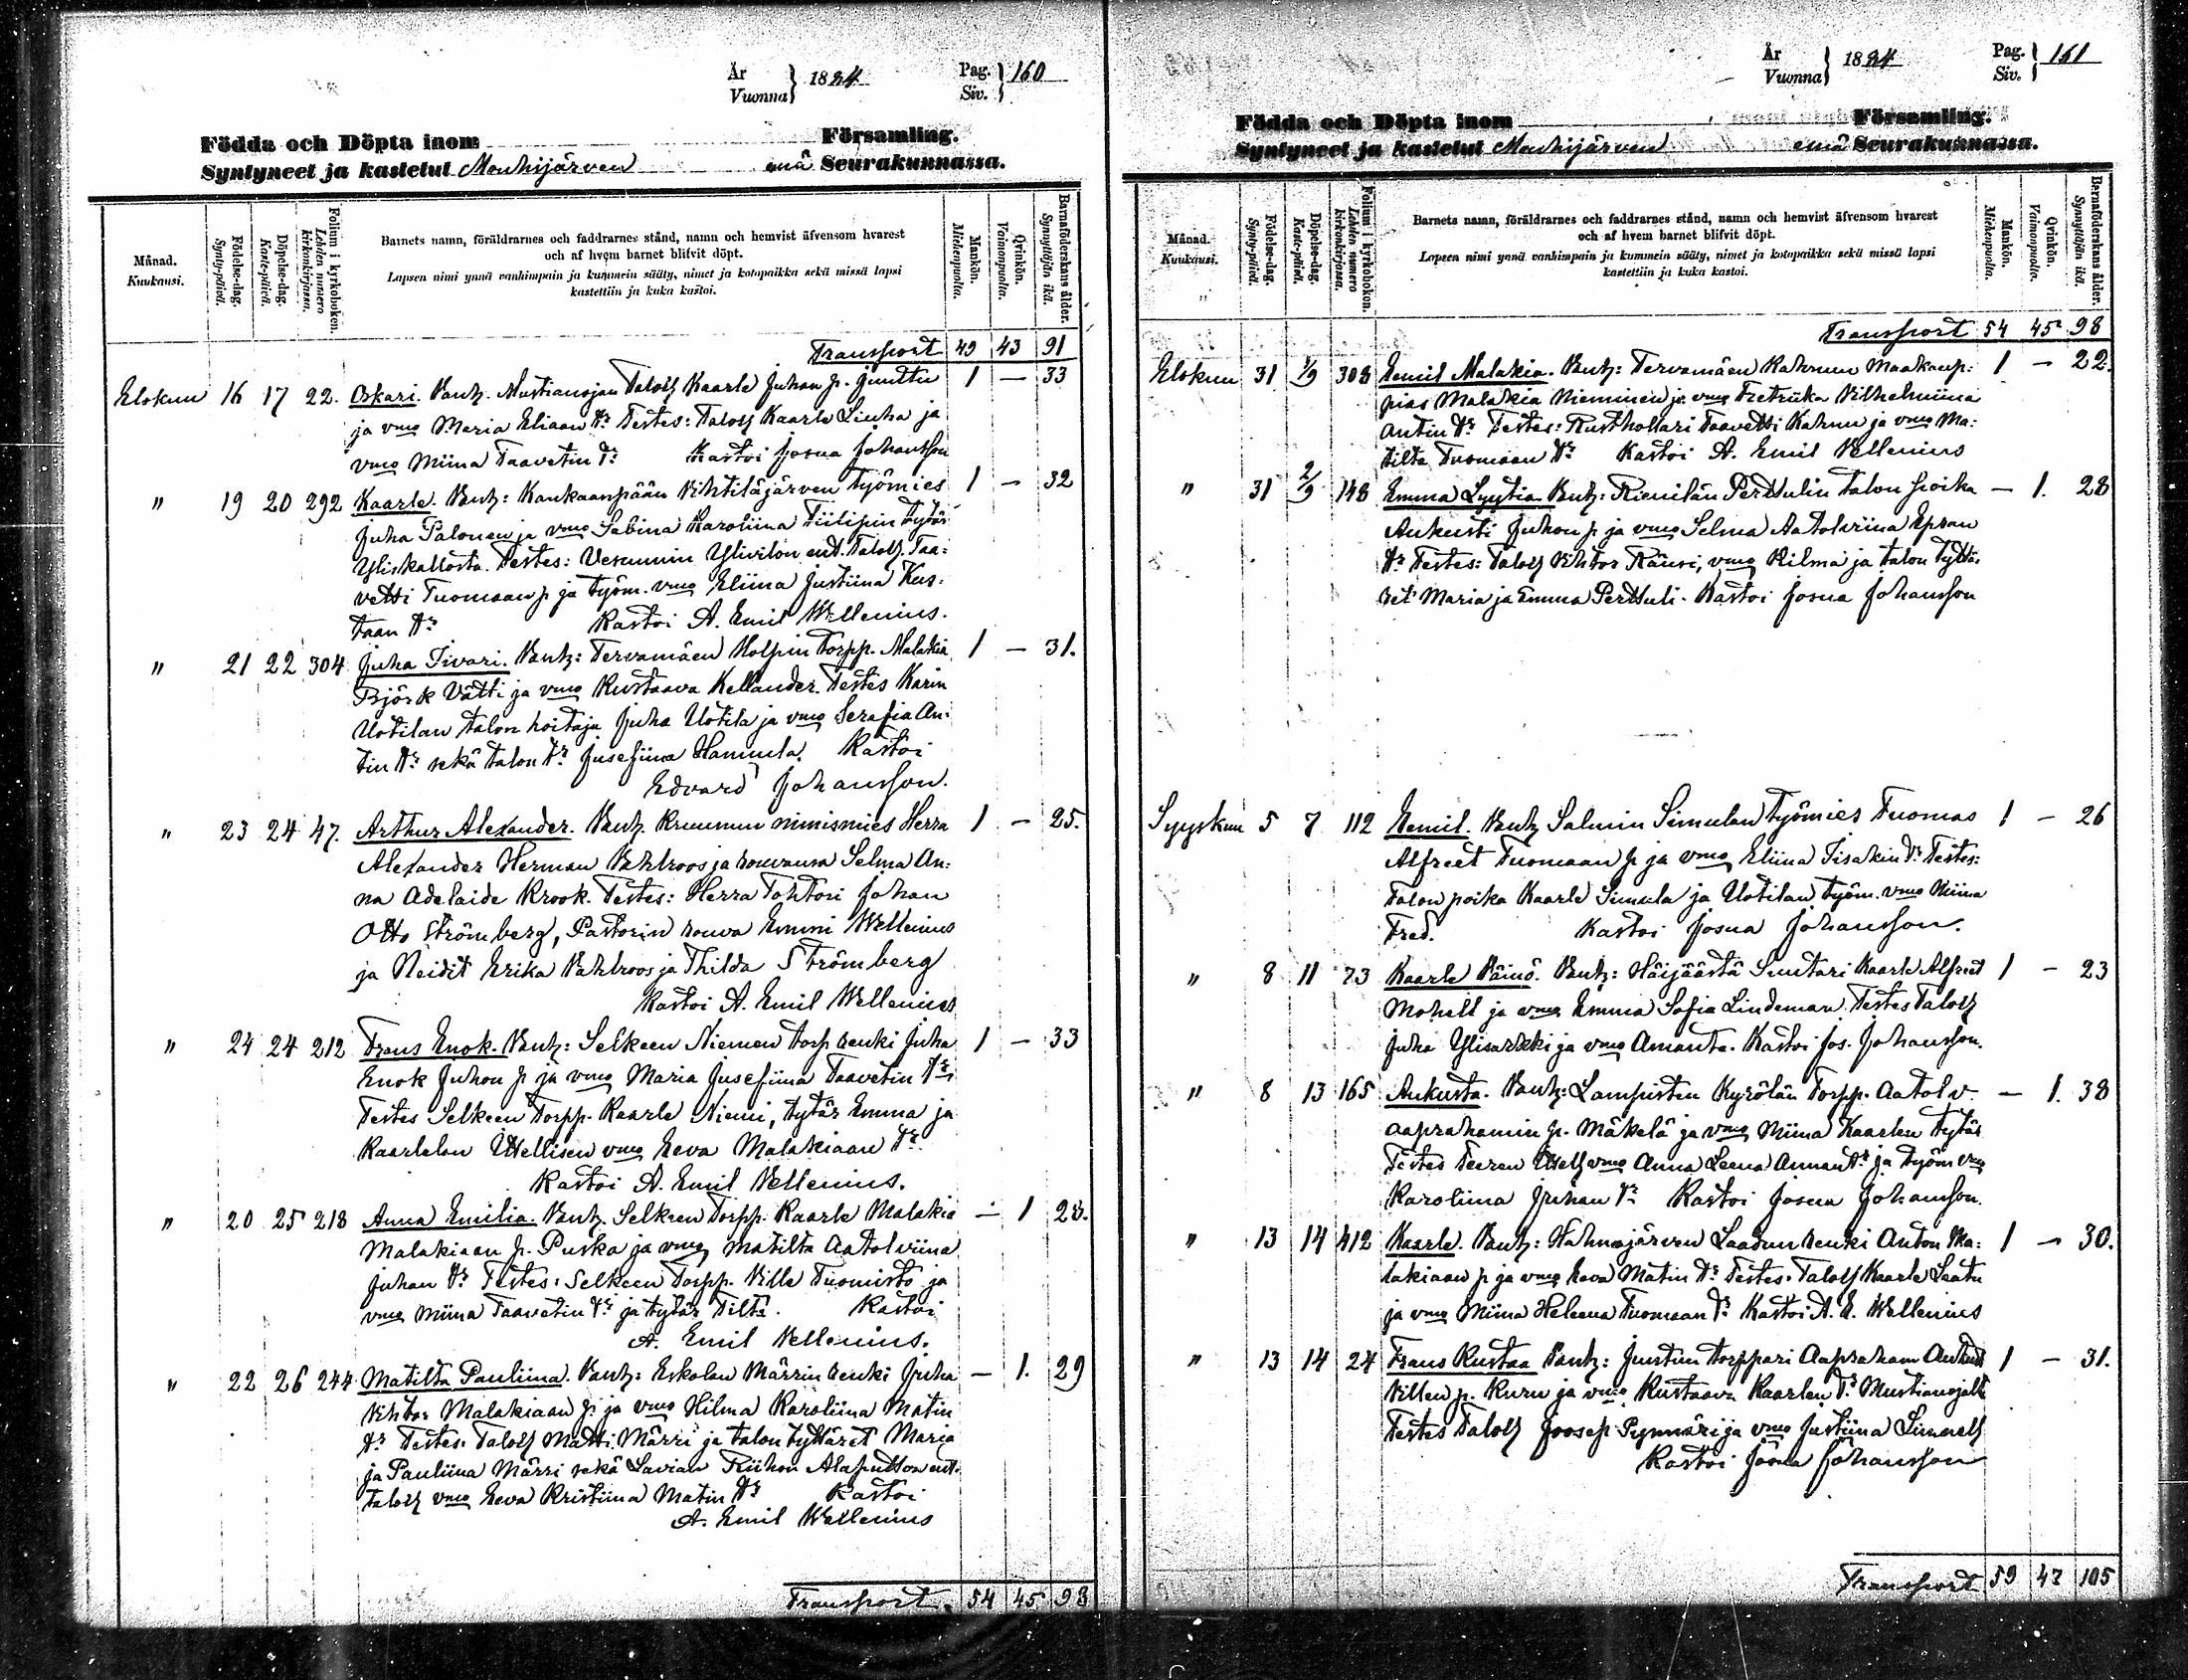 År
Vuonna } 1884
Pag.
Siv. } 160
Födda och Döpta inom Församling.
Syntyneet ja kastetut Mouhijärven emä Seurakunnassa.
Månad.
Kuukausi.
Födelse-dag.
Synty-päivä.
Döpelse-dag.
Kaste-päivä.
Folium i kyrkoboken.
Lehden numero kirkonkirjassa.
Barnets namn, föräldrarnes och faddrarnes stånd, namn och hemvist äfvensom hvarest
och af hvem barnet blifvit döpt.
Lapsen nimi ynnä vanhimpain ja kummein sääty, nimet ja kotopaikka sekä missä lapsi
kastettiin ja kuka kastoi.
Mankön.
Miehenpuolta.
Qvinkön.
Vaimonpuolta.
Barnaföderskans ålder.
Synnyttäjän ikä.
Transport 49 43 91
Elokuu 16 17 22. Oskari. Vanh. Mustianojan Talolz Kaarle Juhan p. Junttu 1 — 33
ja vmo Maria Eliaan tr. Testes: Talolz Kaarle Liuha ja
vmo Miina Taavetin tr. Kastoi Josua Johansson
" 19 20 292 Kaarle. Vanh: Kankaanpään Vihtiläjärven työmies 1 — 32
Juha Palonen ja vmo Sabina Karoliina Tiilipin tytär
Yliskallosta. Testes: Vesunnin Ylivilon ent. Talolz. Taa:
vetti Tuomaan p. ja työm. vmo Eliina Justiina Kus:
taan tr. Kastoi A. Emil Wellenius.
" 21 22 304 Juha Iivari. Vanh: Tervamäen Holpin Torpp. Malakia 1 — 31.
Björk Vätti ja vmo Kustaava Kellander. Testes Karin
Uotilan talon hoitaja Juha Uotila ja vmo Serafia An:
tin tr. sekä talon tr. Josefiina Hannula. Kastoi
Edvard Johansson.
" 23 24 47. Arthur Alexander. Vanh. Kruunun nimismies Herra 1 — 25.
Alexander Herman Vahlroos ja rouvansa Selma An:
na Adelaide Krook. Testes: Herra Tohtori Johan
Otto Strömberg, Pastorin rouva Emmi Wellenius
ja Neidit Erika Vahlroos ja Thilda Strömberg
Kastoi A. Emil Wellenius
" 24 24 212 Frans Enok. Vanh: Selkeen Niemen torp renki Juha 1 — 33
Enok Juhon p. ja vmo Maria Jusefiina Taavetin tr.
Testes Selkeen Torpp. Kaarle Niemi, tytär Emma ja
Kaarlelan Itsellisen vmo Eeva Malakiaan tr.
Kastoi A. Emil Vellenius.
" 20 25 218 Anna Emilia. Vanh. Selkeen Torpp. Kaarle Malakia — 1 28.
Malakiaan p. Puska ja vmo Matilta Aatolviina
Juhan tr. Testes: Selkeen Torpp. Ville Tuomisto ja
vmo Miina Taavetin tr. ja tytär Tilta. Kastoi
A. Emil Vellenius.
" 22 26 244 Matilta Pauliina. Vanh: Eskolan Märrin renki Juha — 1. 29
Vihtor Malakiaan p. ja vmo Hilma Karoliina Matin
tr. Testes. Talolz Matti Märri ja talon tyttäret Maria
ja Pauliina Märri sekä Lavian Riihon ent.
talolz vmo Eeva Kristiina Matin tr. Kastoi
A. Emil Wellenius
Transport. 54 45 98
År
Vuonna } 1884
Pag.
Siv. } 161
Födda och Döpta inom Församling.
Syntyneet ja kastetut Mouhijärven emä Seurakunnassa.
Månad.
Kuukausi.
Födelse-dag.
Synty-päivä.
Döpelse-dag.
Kaste-päivä.
Folium i kyrkoboken.
Lehden numero kirkonkirjassa.
Barnets namn, föräldrarnes och faddrarnes stånd, namn och hemvist äfvensom hvarest
och af hvem barnet blifvit döpt.
Lapsen nimi ynnä vanhimpain ja kummein sääty, nimet ja kotopaikka sekä missä lapsi
kastettiin ja kuka kastoi.
Mankön.
Miehenpuolta.
Qvinkön.
Vaimonpuolta.
Barnaföderskans ålder.
Synnyttäjän ikä.
Transport 54 45 98
Elokuu 31 1/9 308 Eemil Malakia. Vanh: Tervamäen Kahrun Maakaup: 1 — 22.
pias Malakia Nieminen ja vmo Fretriika Vilhelmiina
Antin tr. Testes: Rusthollari Taavetti Kahruu ja vmo Ma:
tilta Tuomaan tr. Kastoi A. Emil Vellenius
" 31 2/9 148 Emma Lyytia. Vanh: Rienilän Perttulin talon poika — 1. 28
Aukusti Juhon p. ja vmo Selma Aatolviina Epran
tr. Testes: Talolz Vihtor Räuri, vmo Hilma ja talon tyttä:
ret Maria ja Emma Perttuli. Kastoi Josua Johansson
Syyskuu 5 7 112 Eemil. Vanh Salmin Simulan työmies Tuomas 1 — 26
Alfreet Tuomaan p. ja vmo Eliina Iisakin tr. Testes:
Talon poika Kaarle Simula ja Uotilan työm. vmo Miina
Fred. Kastoi Josua Johansson.
" 8 11 73 Kaarle Väinö. Vanh: Häijäästä Suutari Kaarle Alfreet 1 — 23
Mohell ja vmo Emma Sofia Lindeman. Testes Talolz
Juha Ylisarkki ja vmo Amanta. Kastoi Jos. Johansson.
" 8 13 165 Aukusta. Vanh: Lampistin Kyrölän Torpp. Aatolv. — 1. 38
Aaprahamin p. Mäkelä ja vmo Miina Kaarlen tytär
Testes Teeren Itselz vmo Anna Leena Annan tr. ja työm vmo
Karoliina Juhan tr. Kastoi Josua Johansson.
" 13 14 412 Kaarle. Vanh: Hahmajärven Laadun renki Anton Ma: 1 — 30.
lakiaan p ja vmo Eeva Matin tr. Testes. Talolz Kaarle Laatu
ja vmo Miina Heleena Tuomaan tr. Kastoi A. E. Wellenius
" 13 14 24 Frans Kustaa Vanh: Junttun torppari Aapraham 1 — 31.
Villen p. Kuru ja vmo Kustaava Kaarlen tr. Mustianojalta
Testes Talolz Joosep Pynnäri ja vmo Justiina
Kastoi Josua Johansson
Transport 59 47 105